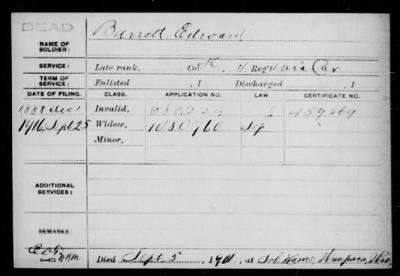 DEAD
NAME OF SOLDIER: Barrett Edward
SERVICE: Late rank, Co. K, 4 Reg't Wis Cav
TERM OF SERVICE: Enlisted , 1 Discharged , 1
DATE OF FILING. CLASS. APPLICATION NO. LAW CERTIFICATE NO.
1888 Dec 1 Invalid, 459,269
1916, Sept 25 Widow, 1080760
Minor,
ADDITIONAL SERVICES:
REMARKS:
Died Sept. 5 , at Sol. Home, Waupaca, Wis